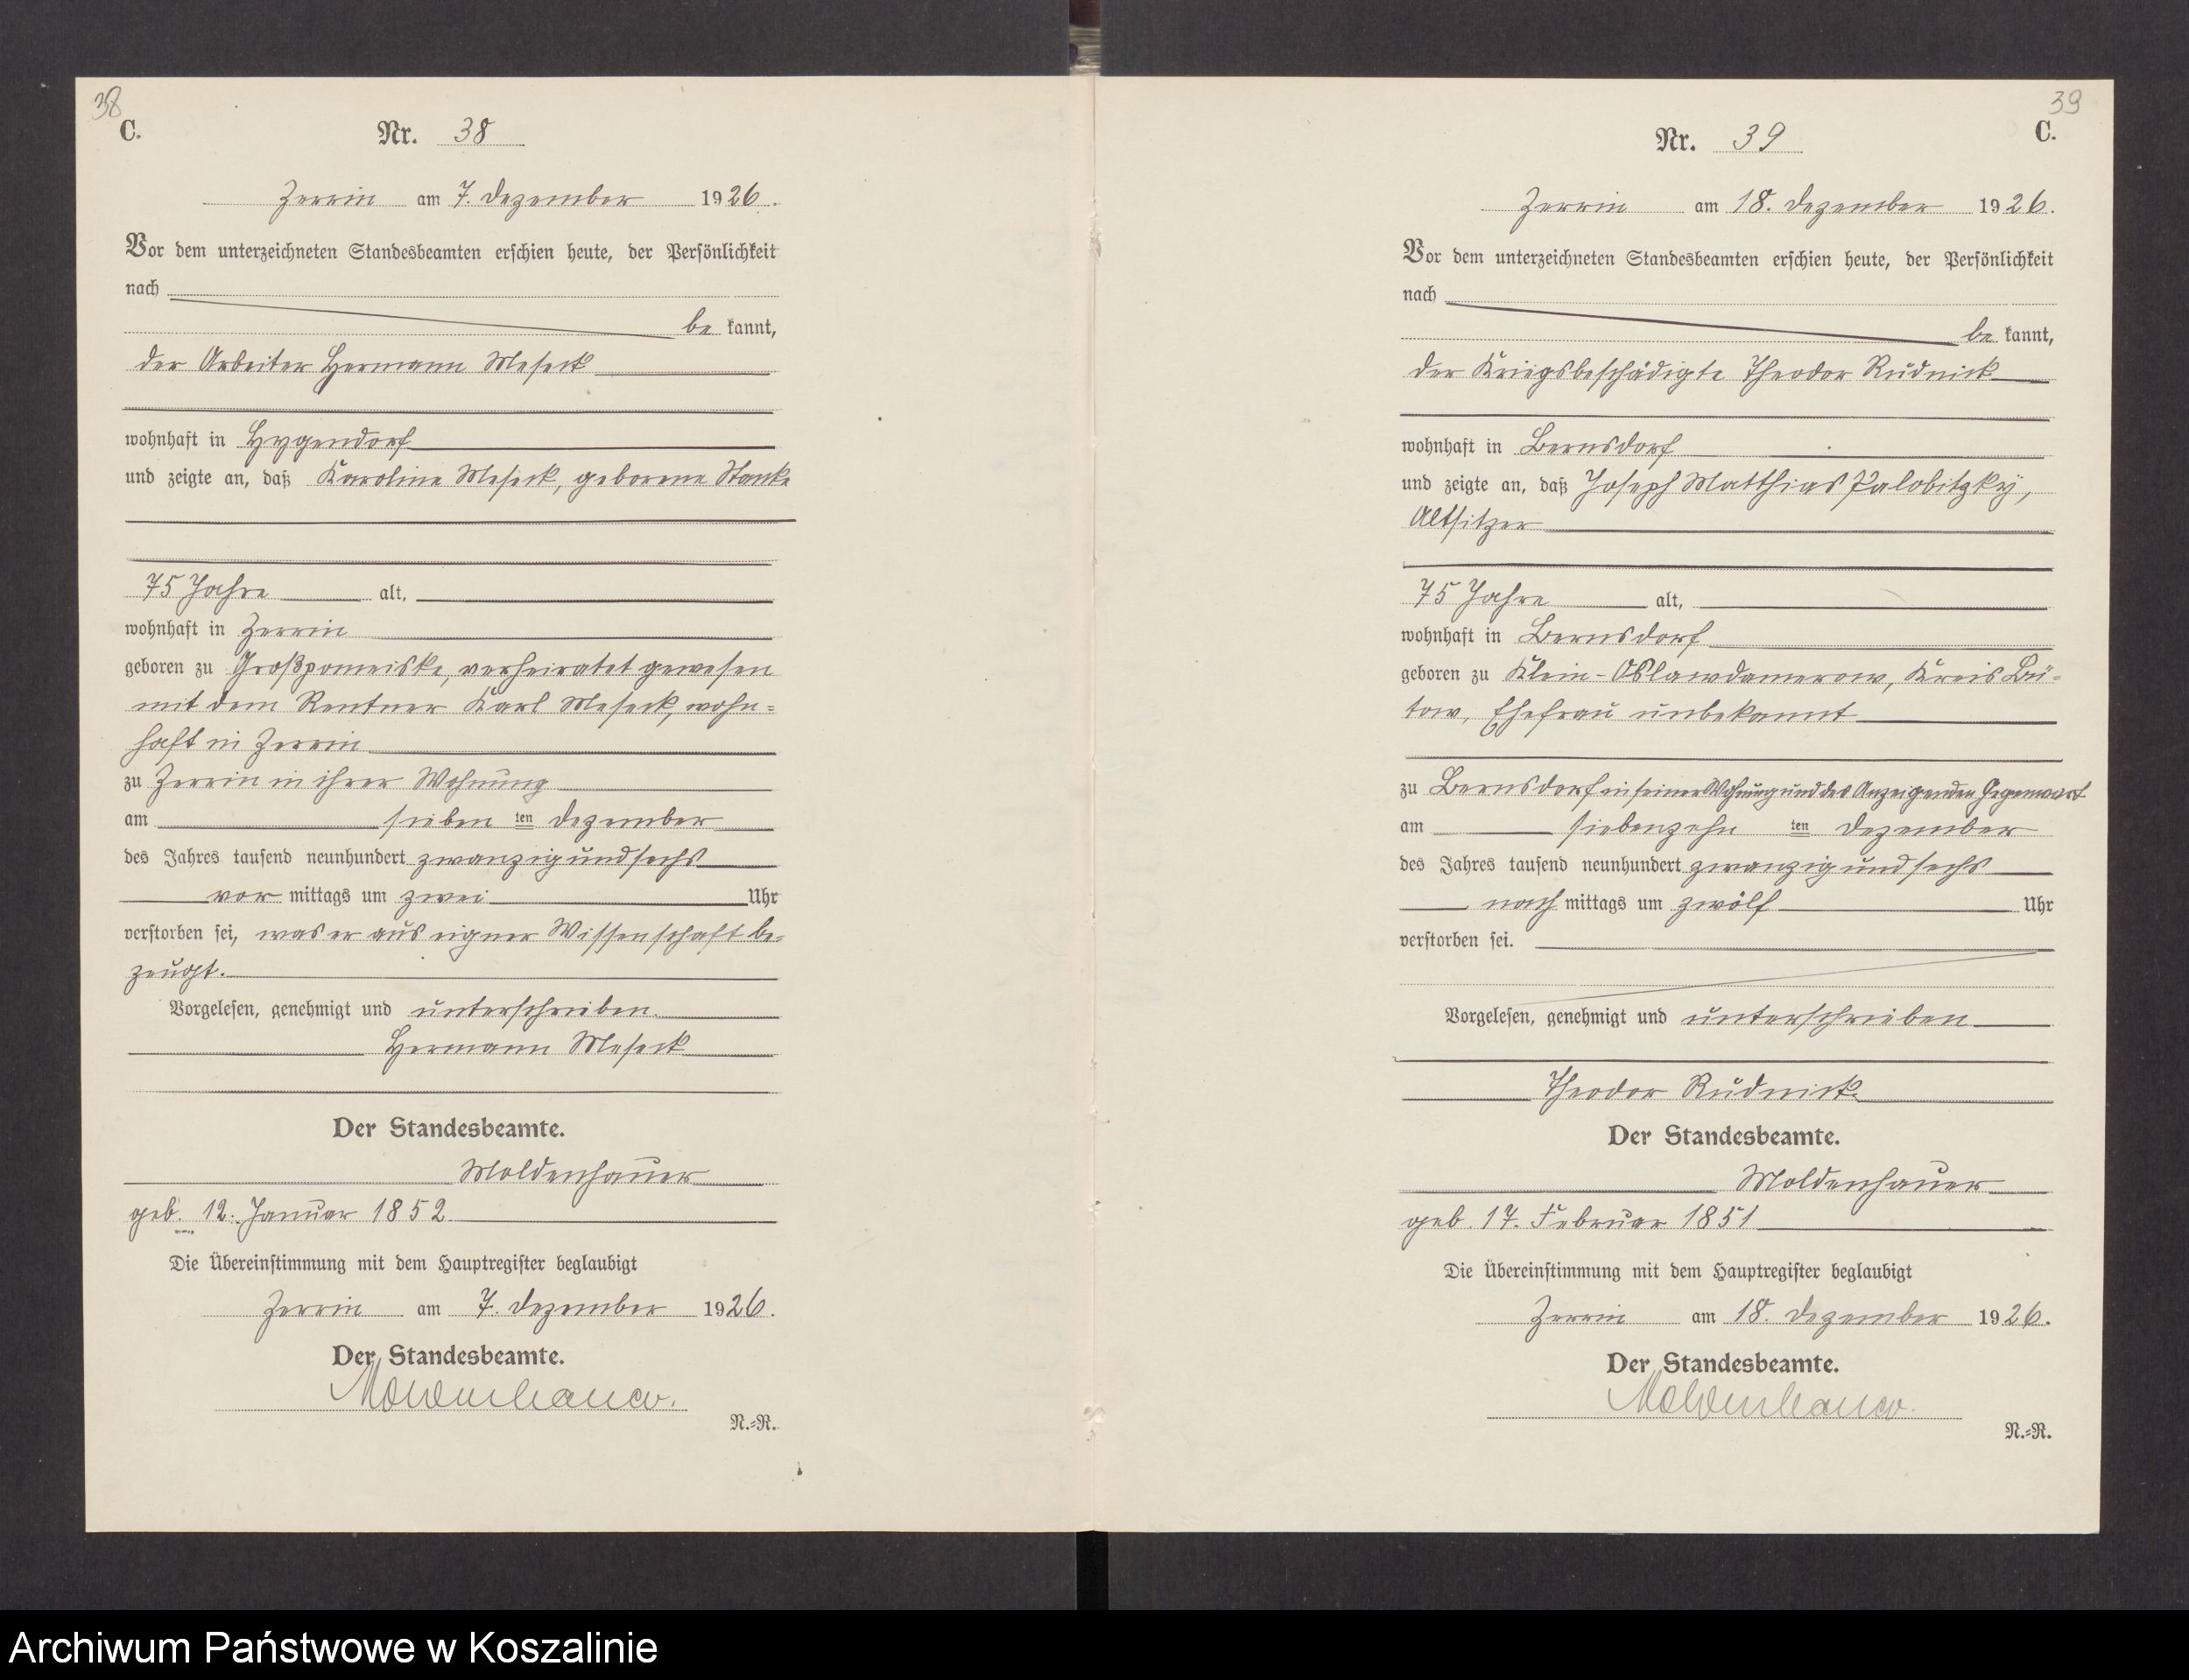 38
C.
Nr. 38
Zerrin am 7. Dezember 1926.
Vor dem unterzeichneten Standesbeamten erschien heute, der Persönlichkeit
nach
be kannt,
der Arbeiter Hermann Meseck
wohnhaft in Hygendorf
und zeigte an, daß Karoline Meseck, geborene Stanke
75 Jahre alt,
wohnhaft in Zerrin
geboren zu Großpomeiske, verheiratet gewesen
mit dem Rentner Karl Meseck, wohn=
haft in Zerrin
zu Zerrin in ihrer Wohnung
am sieben ten Dezember
des Jahres tausend neunhundert zwanzig und sechs
vor mittags um zwei Uhr
verstorben sei, was er aus eigner Wissenschaft be=
zeugt.
Vorgelesen, genehmigt und unterschrieben.
Hermann Meseck
Der Standesbeamte.
Moldenhauer
geb. 12. Januar 1852
Die Übereinstimmung mit dem Hauptregister beglaubigt
Zerrin am 7. Dezember 1926.
Der Standesbeamte.
Moldenhauer.
N.=R.
39
C.
Nr. 39
Zerrin am 18. Dezember 1926.
Vor dem unterzeichneten Standesbeamten erschien heute, der Persönlichkeit
nach
be kannt,
der Kriegsbeschädigte Theodor Rudnick
wohnhaft in Bernsdorf
und zeigte an, daß Joseph Matthias Palobitzky,
Altsitzer
75 Jahre alt,
wohnhaft in Bernsdorf
geboren zu Klein-Oslawdamerow, Kreis Bü=
tow, Ehefrau unbekannt
zu Bernsdorf in seiner Wohnung und des Anzeigenden Gegenwart
am siebenzehn ten Dezember
des Jahres tausend neunhundert zwanzig und sechs
nach mittags um zwölf Uhr
verstorben sei.
Vorgelesen, genehmigt und unterschrieben
Theodor Rudnick
Der Standesbeamte.
Moldenhauer
geb. 17. Februar 1851
Die Übereinstimmung mit dem Hauptregister beglaubigt
Zerrin am 18. Dezember 1926.
Der Standesbeamte.
Moldenhauer.
N.=R.
Archiwum Państwowe w Koszalinie